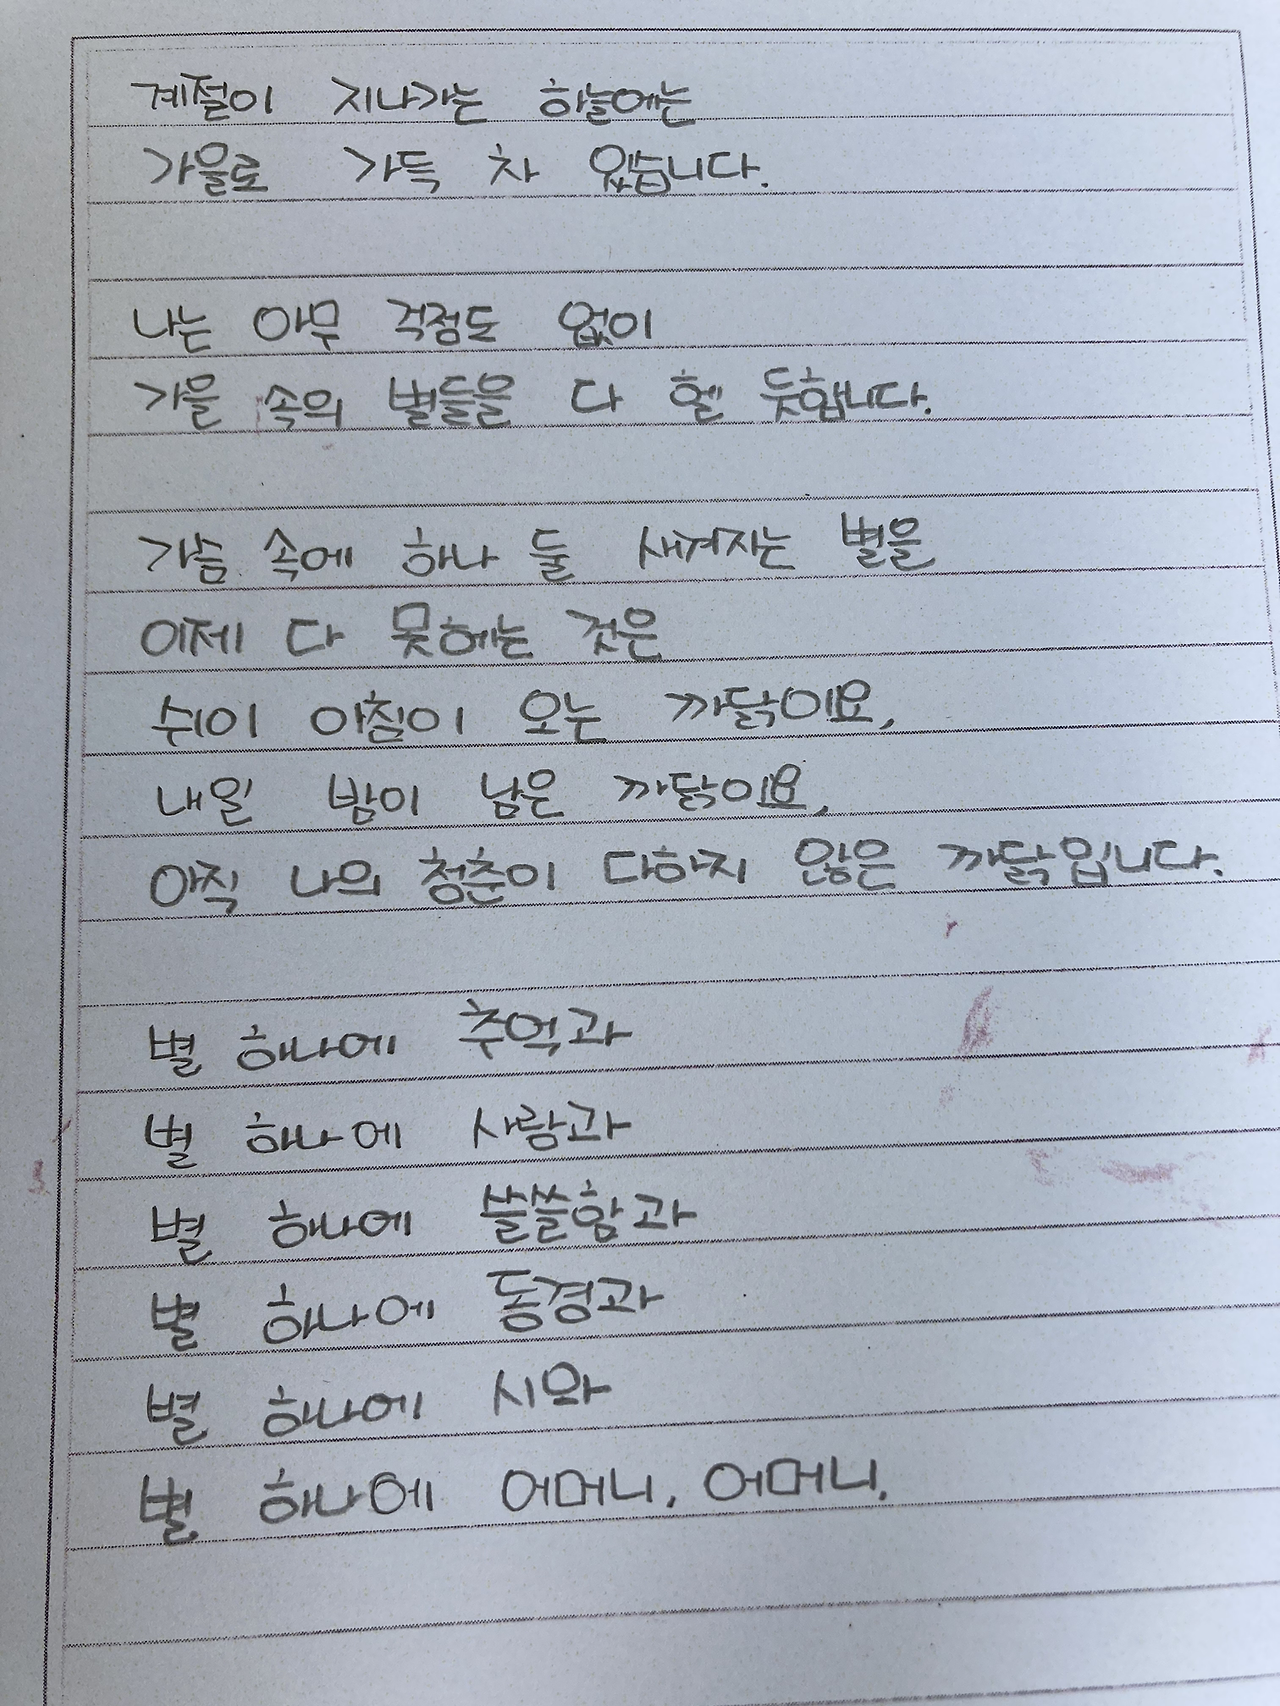 계절이 지나가는 하늘에는
가을로 가득 차 있습니다.
나는 아무 걱정도 없이
가을 속의 별들을 다 헬 듯합니다.
가슴 속에 하나 둘 새겨지는 별을
이제 다 못헤는 것은
쉬이 아침이 오는 까닭이요,
내일 밤이 남은 까닭이요,
아직 나의 청춘이 다하지 않은 까닭입니다.
별 하나에 추억과
별 하나에 사랑과
별 하나에 쓸쓸함과
별 하나에 동경과
별 하나에 시와
별 하나에 어머니, 어머니,